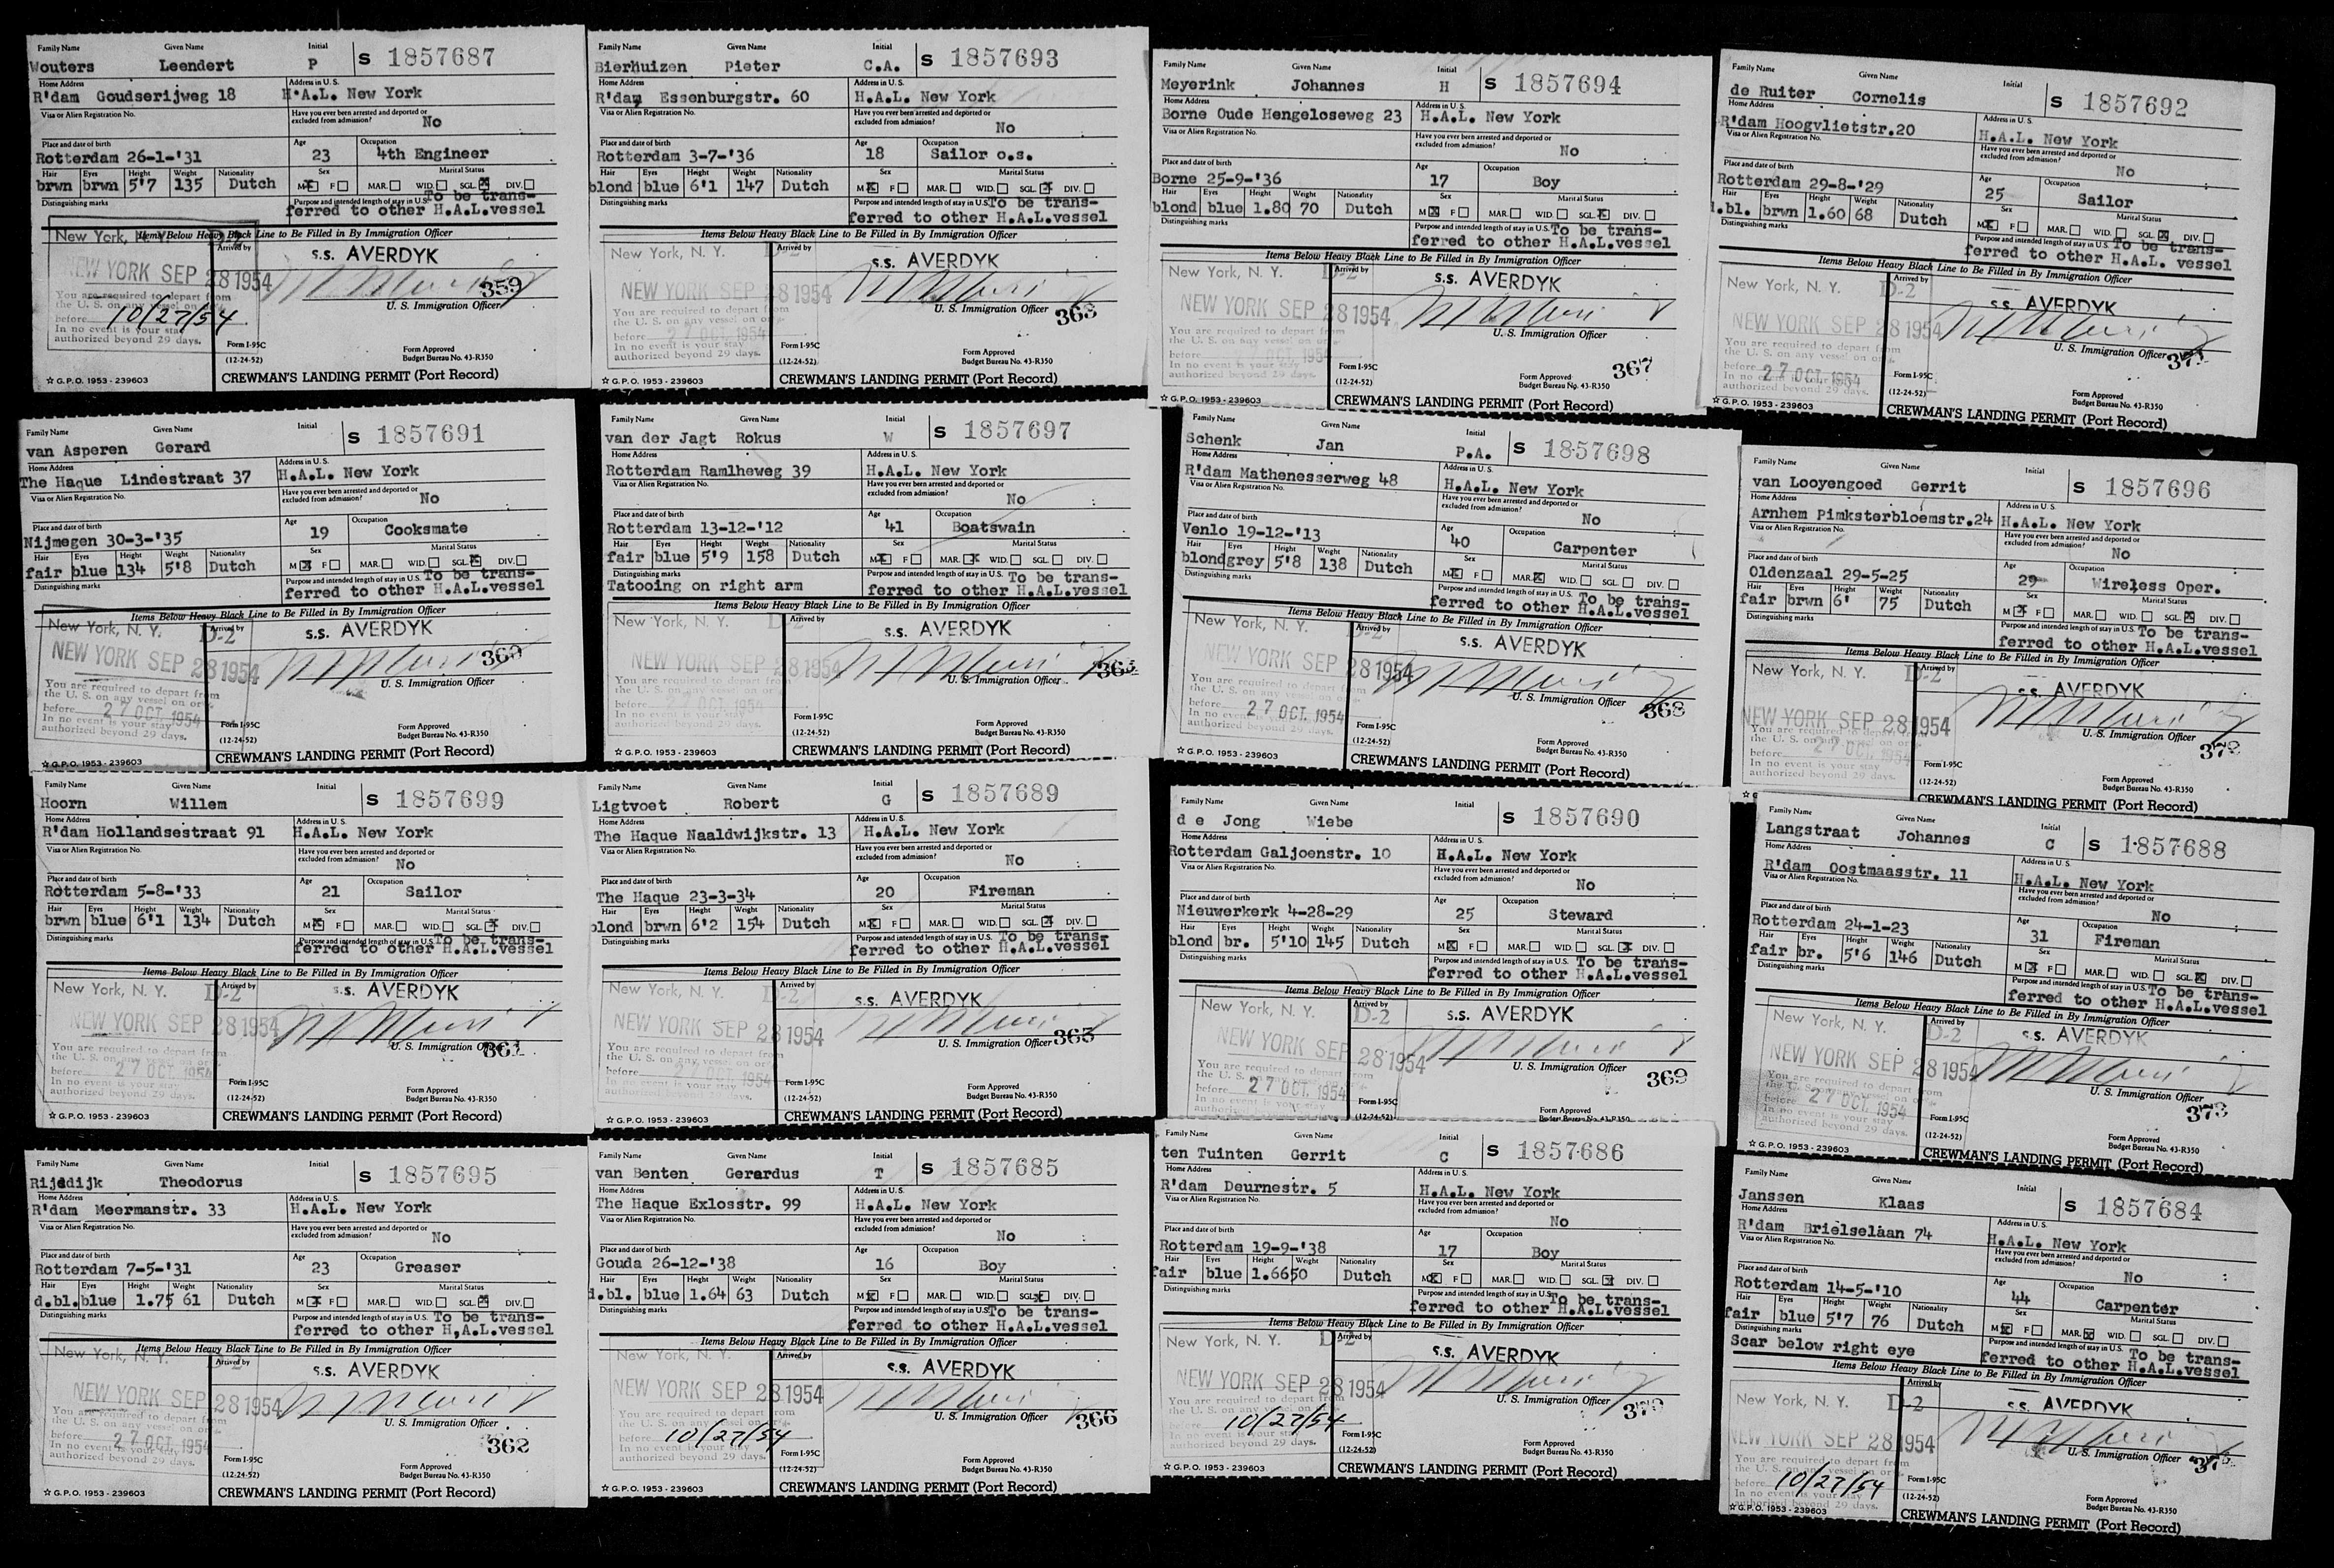 Family Name Given Name Initial
Wouters Leendert P S 1857687
Home Address Address in U.S.
R'dam Goudserijweg 18 H.A.L. New York
Visa or Alien Registration No. Have you ever been arrested and deported or excluded from admission?
No
Place and date of birth Age Occupation
Rotterdam 26-1-'31 23 4th Engineer
Hair Eyes Height Weight Nationality Sex Marital Status
brwn brwn 5'7 135 Dutch M☒ F☐ MAR.☐ WID.☐ SGL☒ DIV.☐
Distinguishing marks Purpose and intended length of stay in U.S. To be trans-
ferred to other H.A.L.vessel
Items Below Heavy Black Line to Be Filled in By Immigration Officer
New York, N. Y. D-2 Arrived by
s.s. AVERDYK
NEW YORK SEP 28 1954
359
You are required to depart from
the U. S. on any vessel on or
before 10/27/54
In no event is your stay
authorized beyond 29 days.
U. S. Immigration Officer
Form I-95C
(12-24-52)
Form Approved
Budget Bureau No. 43-R350
☆ G.P.O. 1953 - 239603 CREWMAN'S LANDING PERMIT (Port Record)
Family Name Given Name Initial
Bierhuizen Pieter C.A. S 1857693
Home Address Address in U.S.
R'dam Essenburgstr. 60 H.A.L. New York
Visa or Alien Registration No. Have you ever been arrested and deported or excluded from admission?
No
Place and date of birth Age Occupation
Rotterdam 3-7-'36 18 Sailor o.s.
Hair Eyes Height Weight Nationality Sex Marital Status
blond blue 6'1 147 Dutch M☒ F☐ MAR.☐ WID.☐ SGL☒ DIV.☐
Distinguishing marks Purpose and intended length of stay in U.S. To be trans-
ferred to other H.A.L.vessel
Items Below Heavy Black Line to Be Filled in By Immigration Officer
New York, N. Y. D-2 Arrived by
s.s. AVERDYK
NEW YORK SEP 28 1954
You are required to depart from
the U. S. on any vessel on or
before 27 OCT 1954
In no event is your stay
authorized beyond 29 days.
U. S. Immigration Officer
Form I-95C
(12-24-52)
Form Approved
Budget Bureau No. 43-R350
☆ G.P.O. 1953 - 239603 CREWMAN'S LANDING PERMIT (Port Record)
Family Name Given Name Initial
Meyerink Johannes H S 1857694
Home Address Address in U.S.
Borne Oude Hengeloseweg 23 H.A.L. New York
Visa or Alien Registration No. Have you ever been arrested and deported or excluded from admission?
No
Place and date of birth Age Occupation
Borne 25-9-'36 17 Boy
Hair Eyes Height Weight Nationality Sex Marital Status
blond blue 1.80 70 Dutch M☒ F☐ MAR.☐ WID.☐ SGL☒ DIV.☐
Distinguishing marks Purpose and intended length of stay in U.S. To be trans-
ferred to other H.A.L.vessel
Items Below Heavy Black Line to Be Filled in By Immigration Officer
New York, N. Y. D-2 Arrived by
s.s. AVERDYK
NEW YORK SEP 28 1954
You are required to depart from
the U. S. on any vessel on or
before 27 OCT 1954
In no event is your stay
authorized beyond 29 days.
U. S. Immigration Officer
367
Form I-95C
(12-24-52)
Form Approved
Budget Bureau No. 43-R350
☆ G.P.O. 1953 - 239603 CREWMAN'S LANDING PERMIT (Port Record)
Family Name Given Name Initial
de Ruiter Cornelis S 1857692
Home Address Address in U.S.
R'dam Hoogvlietstr.20 H.A.L. New York
Visa or Alien Registration No. Have you ever been arrested and deported or excluded from admission?
No
Place and date of birth Age Occupation
Rotterdam 29-8-'29 25 Sailor
Hair Eyes Height Weight Nationality Sex Marital Status
d.bl. brwn 1.60 68 Dutch M☒ F☐ MAR.☐ WID.☐ SGL☒ DIV.☐
Distinguishing marks Purpose and intended length of stay in U.S. To be trans-
ferred to other H.A.L. vessel
Items Below Heavy Black Line to Be Filled in By Immigration Officer
New York, N. Y. D-2 Arrived by
s.s. AVERDYK
NEW YORK SEP 28 1954
You are required to depart from
the U. S. on any vessel on or
before 27 OCT 1954
In no event is your stay
authorized beyond 29 days.
U. S. Immigration Officer
Form I-95C
(12-24-52)
Form Approved
Budget Bureau No. 43-R350
☆ G.P.O. 1953 - 239603 CREWMAN'S LANDING PERMIT (Port Record)
Family Name Given Name Initial
van Asperen Gerard S 1857691
Home Address Address in U.S.
The Haque Lindestraat 37 H.A.L. New York
Visa or Alien Registration No. Have you ever been arrested and deported or excluded from admission?
No
Place and date of birth Age Occupation
Nijmegen 30-3-'35 19 Cooksmate
Hair Eyes Height Weight Nationality Sex Marital Status
fair blue 134 5'8 Dutch M☒ F☐ MAR.☐ WID.☐ SGL☒ DIV.☐
Distinguishing marks Purpose and intended length of stay in U.S. To be trans-
ferred to other H.A.L.vessel
Items Below Heavy Black Line to Be Filled in By Immigration Officer
New York, N. Y. D-2 Arrived by
s.s. AVERDYK
NEW YORK SEP 28 1954
360
You are required to depart from
the U. S. on any vessel on or
before 27 OCT. 1954
In no event is your stay
authorized beyond 29 days.
U. S. Immigration Officer
Form I-95C
(12-24-52)
Form Approved
Budget Bureau No. 43-R350
☆ G.P.O. 1953 - 239603 CREWMAN'S LANDING PERMIT (Port Record)
Family Name Given Name Initial
van der Jagt Rokus W S 1857697
Home Address Address in U.S.
Rotterdam Ramlheweg 39 H.A.L. New York
Visa or Alien Registration No. Have you ever been arrested and deported or excluded from admission?
No
Place and date of birth Age Occupation
Rotterdam 13-12-'12 41 Boatswain
Hair Eyes Height Weight Nationality Sex Marital Status
fair blue 5'9 158 Dutch M☒ F☐ MAR.☒ WID.☐ SGL☐ DIV.☐
Distinguishing marks Purpose and intended length of stay in U.S. To be trans-
Tatooing on right arm ferred to other H.A.L.vessel
Items Below Heavy Black Line to Be Filled in By Immigration Officer
New York, N. Y. D-2 Arrived by
s.s. AVERDYK
NEW YORK SEP 28 1954
You are required to depart from
the U. S. on any vessel on or
before 27 OCT 1954
In no event is your stay
authorized beyond 29 days.
U. S. Immigration Officer
Form I-95C
(12-24-52)
Form Approved
Budget Bureau No. 43-R350
☆ G.P.O. 1953 - 239603 CREWMAN'S LANDING PERMIT (Port Record)
Family Name Given Name Initial
Schenk Jan P.A. S 1857698
Home Address Address in U.S.
R'dam Mathenesserweg 48 H.A.L. New York
Visa or Alien Registration No. Have you ever been arrested and deported or excluded from admission?
No
Place and date of birth Age Occupation
Venlo 19-12-'13 40 Carpenter
Hair Eyes Height Weight Nationality Sex Marital Status
blond grey 5'8 138 Dutch M☒ F☐ MAR.☒ WID.☐ SGL☐ DIV.☐
Distinguishing marks Purpose and intended length of stay in U.S. To be trans-
ferred to other H.A.L.vessel
Items Below Heavy Black Line to Be Filled in By Immigration Officer
New York, N. Y. D-2 Arrived by
s.s. AVERDYK
NEW YORK SEP 28 1954
You are required to depart from
the U. S. on any vessel on or
before 27 OCT. 1954
In no event is your stay
authorized beyond 29 days.
U. S. Immigration Officer
368
Form I-95C
(12-24-52)
Form Approved
Budget Bureau No. 43-R350
☆ G.P.O. 1953 - 239603 CREWMAN'S LANDING PERMIT (Port Record)
Family Name Given Name Initial
van Looyengoed Gerrit S 1857696
Home Address Address in U.S.
Arnhem Pimksterbloemstr.24 H.A.L. New York
Visa or Alien Registration No. Have you ever been arrested and deported or excluded from admission?
No
Place and date of birth Age Occupation
Oldenzaal 29-5-25 29 Wireless Oper.
Hair Eyes Height Weight Nationality Sex Marital Status
fair brwn 6' 75 Dutch M☒ F☐ MAR.☐ WID.☐ SGL☒ DIV.☐
Distinguishing marks Purpose and intended length of stay in U.S. To be trans-
ferred to other H.A.L.vessel
Items Below Heavy Black Line to Be Filled in By Immigration Officer
New York, N. Y. D-2 Arrived by
s.s. AVERDYK
NEW YORK SEP 28 1954
You are required to depart from
the U. S. on any vessel on or
before 27 OCT 1954
In no event is your stay
authorized beyond 29 days.
U. S. Immigration Officer
Form I-95C
(12-24-52)
Form Approved
Budget Bureau No. 43-R350
CREWMAN'S LANDING PERMIT (Port Record)
Family Name Given Name Initial
Hoorn Willem S 1857699
Home Address Address in U.S.
R'dam Hollandsestraat 91 H.A.L. New York
Visa or Alien Registration No. Have you ever been arrested and deported or excluded from admission?
No
Place and date of birth Age Occupation
Rotterdam 5-8-'33 21 Sailor
Hair Eyes Height Weight Nationality Sex Marital Status
brwn blue 6'1 134 Dutch M☒ F☐ MAR.☐ WID.☐ SGL☒ DIV.☐
Distinguishing marks Purpose and intended length of stay in U.S. To be trans-
ferred to other H.A.L.vessel
Items Below Heavy Black Line to Be Filled in By Immigration Officer
New York, N. Y. D-2 Arrived by
s.s. AVERDYK
NEW YORK SEP 28 1954
You are required to depart from
the U. S. on any vessel on or
before 27 OCT 1954
In no event is your stay
authorized beyond 29 days.
U. S. Immigration Officer
Form I-95C
(12-24-52)
Form Approved
Budget Bureau No. 43-R350
☆ G.P.O. 1953 - 239603 CREWMAN'S LANDING PERMIT (Port Record)
Family Name Given Name Initial
Ligtvoet Robert G S 1857689
Home Address Address in U.S.
The Haque Naaldwijkstr. 13 H.A.L. New York
Visa or Alien Registration No. Have you ever been arrested and deported or excluded from admission?
No
Place and date of birth Age Occupation
The Haque 23-3-34 20 Fireman
Hair Eyes Height Weight Nationality Sex Marital Status
blond brwn 6'2 154 Dutch M☒ F☐ MAR.☐ WID.☐ SGL☒ DIV.☐
Distinguishing marks Purpose and intended length of stay in U.S. To be trans-
ferred to other H.A.L.vessel
Items Below Heavy Black Line to Be Filled in By Immigration Officer
New York, N. Y. D-2 Arrived by
s.s. AVERDYK
NEW YORK SEP 28 1954
You are required to depart from
the U. S. on any vessel on or
before 27 OCT 1954
In no event is your stay
authorized beyond 29 days.
U. S. Immigration Officer 365
Form I-95C
(12-24-52)
Form Approved
Budget Bureau No. 43-R350
☆ G.P.O. 1953 - 239603 CREWMAN'S LANDING PERMIT (Port Record)
Family Name Given Name Initial
d e Jong Wiebe S 1857690
Home Address Address in U.S.
Rotterdam Galjoenstr. 10 H.A.L. New York
Visa or Alien Registration No. Have you ever been arrested and deported or excluded from admission?
No
Place and date of birth Age Occupation
Nieuwerkerk 4-28-29 25 Steward
Hair Eyes Height Weight Nationality Sex Marital Status
blond br. 5'10 145 Dutch M☒ F☐ MAR.☐ WID.☐ SGL☒ DIV.☐
Distinguishing marks Purpose and intended length of stay in U.S. To be trans-
ferred to other H.A.L.vessel
Items Below Heavy Black Line to Be Filled in By Immigration Officer
New York, N. Y. D-2 Arrived by
s.s. AVERDYK
NEW YORK SEP 28 1954
You are required to depart from
the U. S.
before 27 OCT. 1954
In no event is your stay
U. S. Immigration Officer
369
Form I-95C
(12-24-52)
Form Approved
Budget Bureau No. 43-R350
Family Name Given Name Initial
Langstraat Johannes C S 1857688
Home Address Address in U.S.
R'dam Oostmaasstr. 11 H.A.L. New York
Visa or Alien Registration No. Have you ever been arrested and deported or excluded from admission?
No
Place and date of birth Age Occupation
Rotterdam 24-1-23 31 Fireman
Hair Eyes Height Weight Nationality Sex Marital Status
fair br. 5'6 146 Dutch M☒ F☐ MAR.☐ WID.☐ SGL☒ DIV.☐
Distinguishing marks Purpose and intended length of stay in U.S. To be trans-
ferred to other H.A.L.vessel
Items Below Heavy Black Line to Be Filled in By Immigration Officer
New York, N. Y. D-2 Arrived by
s.s. AVERDYK
NEW YORK SEP 28 1954
You are required to depart from
the U. S. on any vessel on or
before 27 OCT. 1954
In no event is your stay
authorized beyond 29 days.
U. S. Immigration Officer
373
Form I-95C
(12-24-52)
Form Approved
Budget Bureau No. 43-R350
☆ G.P.O. 1953 - 239603 CREWMAN'S LANDING PERMIT (Port Record)
Family Name Given Name Initial
Rijsdijk Theodorus S 1857695
Home Address Address in U.S.
R'dam Meermanstr. 33 H.A.L. New York
Visa or Alien Registration No. Have you ever been arrested and deported or excluded from admission?
No
Place and date of birth Age Occupation
Rotterdam 7-5-'31 23 Greaser
Hair Eyes Height Weight Nationality Sex Marital Status
d.bl. blue 1.75 61 Dutch M☒ F☐ MAR.☐ WID.☐ SGL☒ DIV.☐
Distinguishing marks Purpose and intended length of stay in U.S. To be trans-
ferred to other H,A.L.vessel
Items Below Heavy Black Line to Be Filled in By Immigration Officer
New York, N. Y. Arrived by
s.s. AVERDYK
NEW YORK SEP 28 1954
You are required to depart from
the U. S. on any vessel on or
before 27 OCT. 1954
In no event is your stay
authorized beyond 29 days.
U. S. Immigration Officer
362
Form I-95C
(12-24-52)
Form Approved
Budget Bureau No. 43-R350
☆ G.P.O. 1953 - 239603 CREWMAN'S LANDING PERMIT (Port Record)
Family Name Given Name Initial
van Benten Gerardus T S 1857685
Home Address Address in U.S.
The Haque Exlosstr. 99 H.A.L. New York
Visa or Alien Registration No. Have you ever been arrested and deported or excluded from admission?
No
Place and date of birth Age Occupation
Gouda 26-12-'38 16 Boy
Hair Eyes Height Weight Nationality Sex Marital Status
d.bl. blue 1.64 63 Dutch M☒ F☐ MAR.☐ WID.☐ SGL☒ DIV.☐
Distinguishing marks Purpose and intended length of stay in U.S. To be trans-
ferred to other H.A.L.vessel
Items Below Heavy Black Line to Be Filled in By Immigration Officer
New York, N. Y. Arrived by
s.s. AVERDYK
NEW YORK SEP 28 1954
You are required to depart from
the U. S. on any vessel on or
before 10/27/54
In no event is your stay
authorized beyond 29 days.
U. S. Immigration Officer 366
Form I-95C
(12-24-52)
Form Approved
Budget Bureau No. 43-R350
☆ G.P.O. 1953 - 239603 CREWMAN'S LANDING PERMIT (Port Record)
Family Name Given Name Initial
ten Tuinten Gerrit C S 1857686
Home Address Address in U.S.
R'dam Deurnestr. 5 H.A.L. New York
Visa or Alien Registration No. Have you ever been arrested and deported or excluded from admission?
No
Place and date of birth Age Occupation
Rotterdam 19-9-'38 17 Boy
Hair Eyes Height Weight Nationality Sex Marital Status
fair blue 1.6650 Dutch M☒ F☐ MAR.☐ WID.☐ SGL☒ DIV.☐
Distinguishing marks Purpose and intended length of stay in U.S. To be trans-
ferred to other H.A.L.vessel
Items Below Heavy Black Line to Be Filled in By Immigration Officer
New York, N. Y. D-2 Arrived by
s.s. AVERDYK
NEW YORK SEP 28 1954
You are required to depart from
the U. S. on any vessel on or
before 10/27/54
In no event is your stay
authorized beyond 29 days.
U. S. Immigration Officer
Form I-95C
(12-24-52)
Form Approved
Budget Bureau No. 43-R350
☆ G.P.O. 1953 - 239603 CREWMAN'S LANDING PERMIT (Port Record)
Family Name Given Name Initial
Janssen Klaas S 1857684
Home Address Address in U.S.
R'dam Brielselaan 74 H.A.L. New York
Visa or Alien Registration No. Have you ever been arrested and deported or excluded from admission?
No
Place and date of birth Age Occupation
Rotterdam 14-5-'10 44 Carpenter
Hair Eyes Height Weight Nationality Sex Marital Status
fair blue 5'7 76 Dutch M☒ F☐ MAR.☒ WID.☐ SGL☐ DIV.☐
Distinguishing marks Purpose and intended length of stay in U.S. To be trans-
Scar below right eye ferred to other H.A.L.vessel
Items Below Heavy Black Line to Be Filled in By Immigration Officer
New York, N. Y. D-2 Arrived by
s.s. AVERDYK
NEW YORK SEP 28 1954
You are required to depart from
the U. S. on any vessel on or
before 10/27/54
In no event is your stay
authorized beyond 29 days.
U. S. Immigration Officer
Form I-95C
(12-24-52)
Form Approved
Budget Bureau No. 43-R350
☆ G.P.O. 1953 - 239603 CREWMAN'S LANDING PERMIT (Port Record)